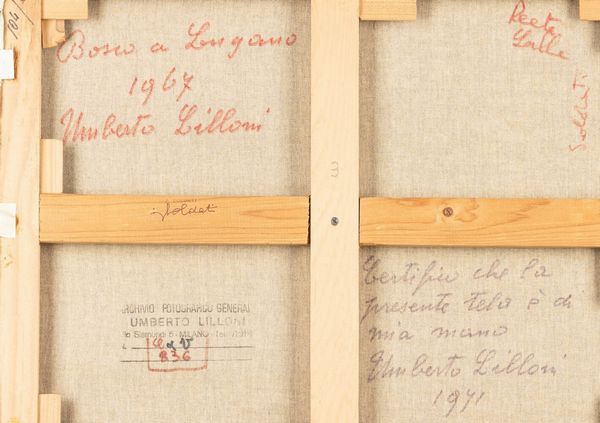 104/
Bosco a Lugano
1967
Umberto Lilloni
Soldati
3
ARCHIVIO FOTOGRAFICO GENERAL
UMBERTO LILLONI
MILANO
836
Lalle
Soldati
Certifico che la
presente tela è di
mia mano
Umberto Lilloni
1971